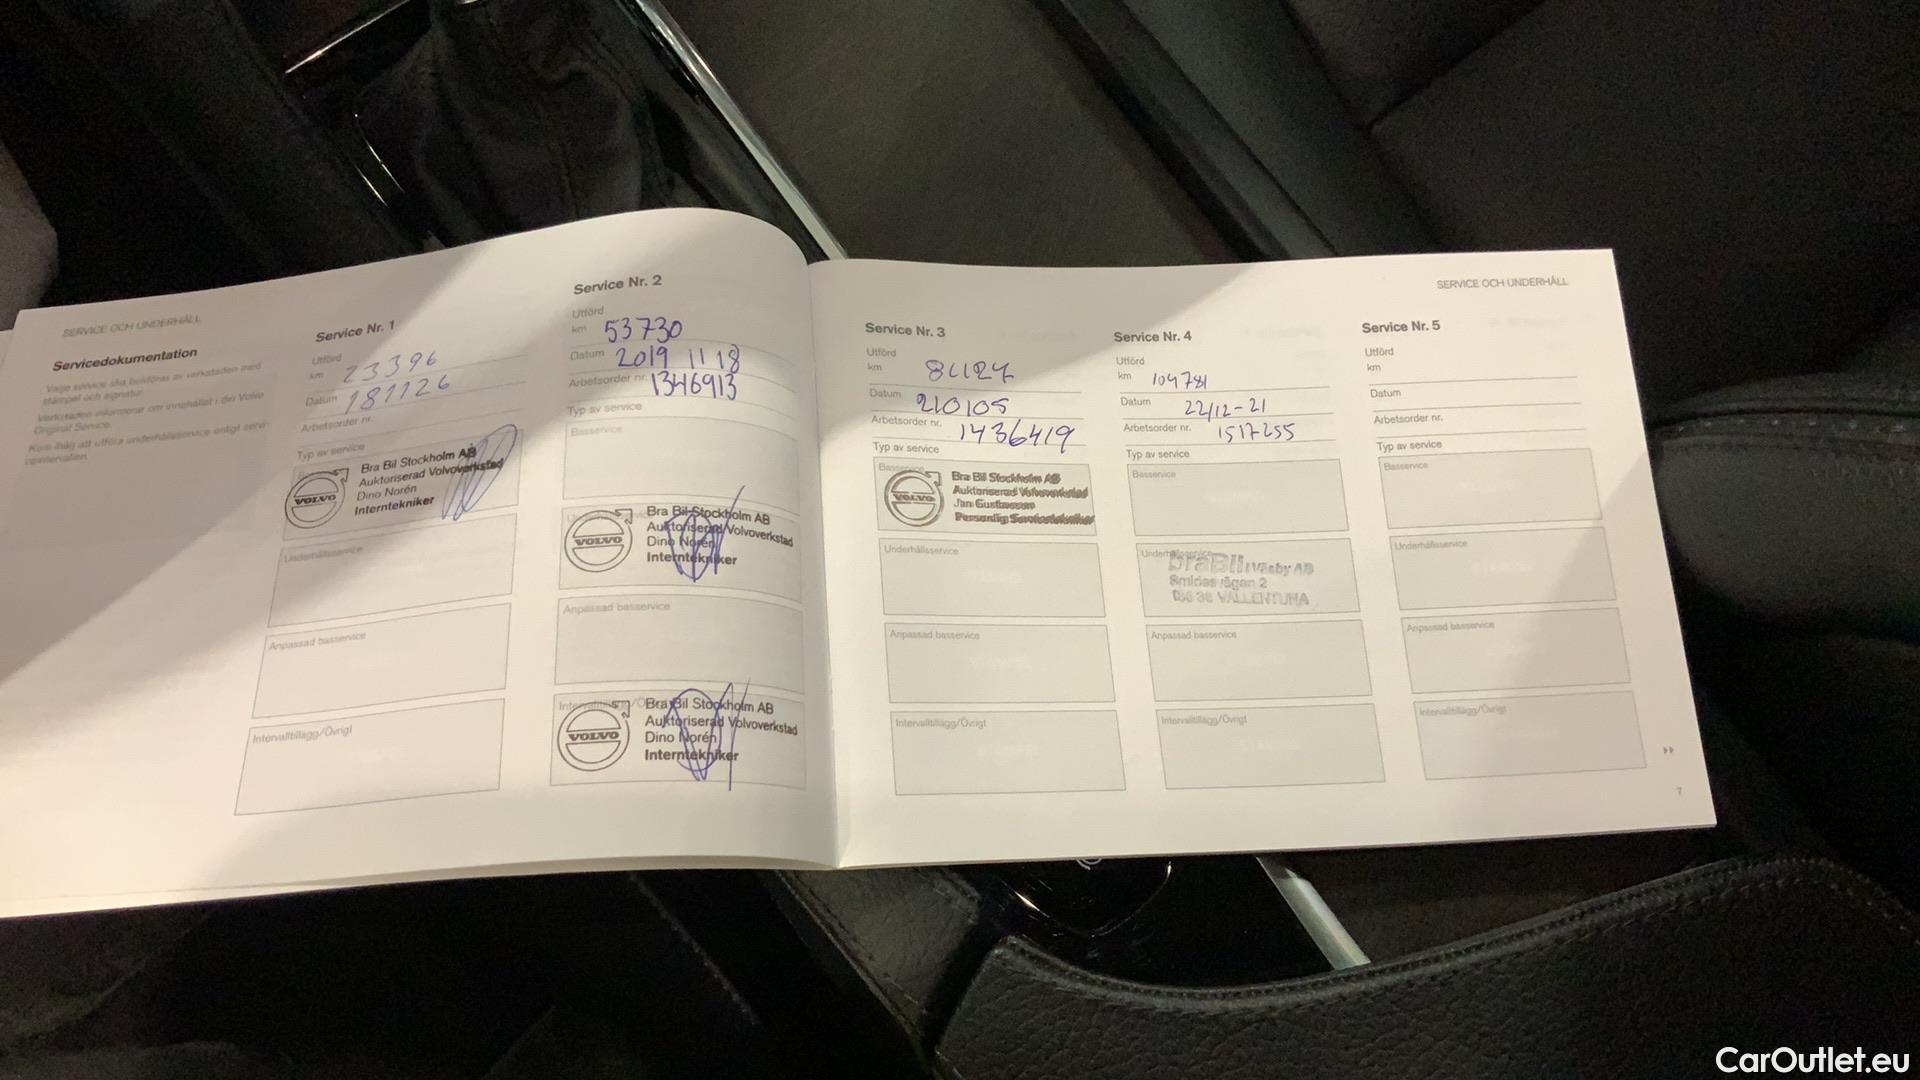 SERVICE OCH UNDERHÅLL
Servicedokumentation
Varje service ska bokföras av verkstaden med
stämpel och signatur.
Verkstaden informerar om innehållet i din Volvo
Original Service.
Kom ihåg att utföra underhållsservice enligt servi-
Service Nr. 1
Utförd
km 23396
Datum 181126
Arbetsorder nr.
Typ av service
Bra Bil Stockholm AB
Auktoriserad Volvoverkstad
Dino Norén
Interntekniker
VOLVO
Underhållsservice
Anpassad basservice
Intervalltillägg/Övrigt
Service Nr. 2
Utförd
km 53730
Datum 2019 11 18
Arbetsorder nr. 1346913
Typ av service
Basservice
Bra Bil Stockholm AB
Auktoriserad Volvoverkstad
Dino Norén
Interntekniker
VOLVO
Anpassad basservice
Bra Bil Stockholm AB
Auktoriserad Volvoverkstad
Dino Norén
Interntekniker
VOLVO
SERVICE OCH UNDERHÅLL
Service Nr. 3
Utförd
km
Datum 210105
Arbetsorder nr. 1436419
Typ av service
Basservice
Bra Bil Stockholm AB
Auktoriserad Volvoverkstad
Jan Gustavsson
Personlig Servicetekniker
VOLVO
Underhållsservice
Anpassad basservice
Intervalltillägg/Övrigt
Service Nr. 4
Utförd
km 104781
Datum 22/12-21
Arbetsorder nr. 1517255
Typ av service
Basservice
Underhållsservice
braBil i Väsby AB
186 36 VALLENTUNA
Anpassad basservice
Intervalltillägg/Övrigt
Service Nr. 5
Utförd
km
Datum
Arbetsorder nr.
Typ av service
Basservice
Underhållsservice
Anpassad basservice
Intervalltillägg/Övrigt
7
CarOutlet.eu